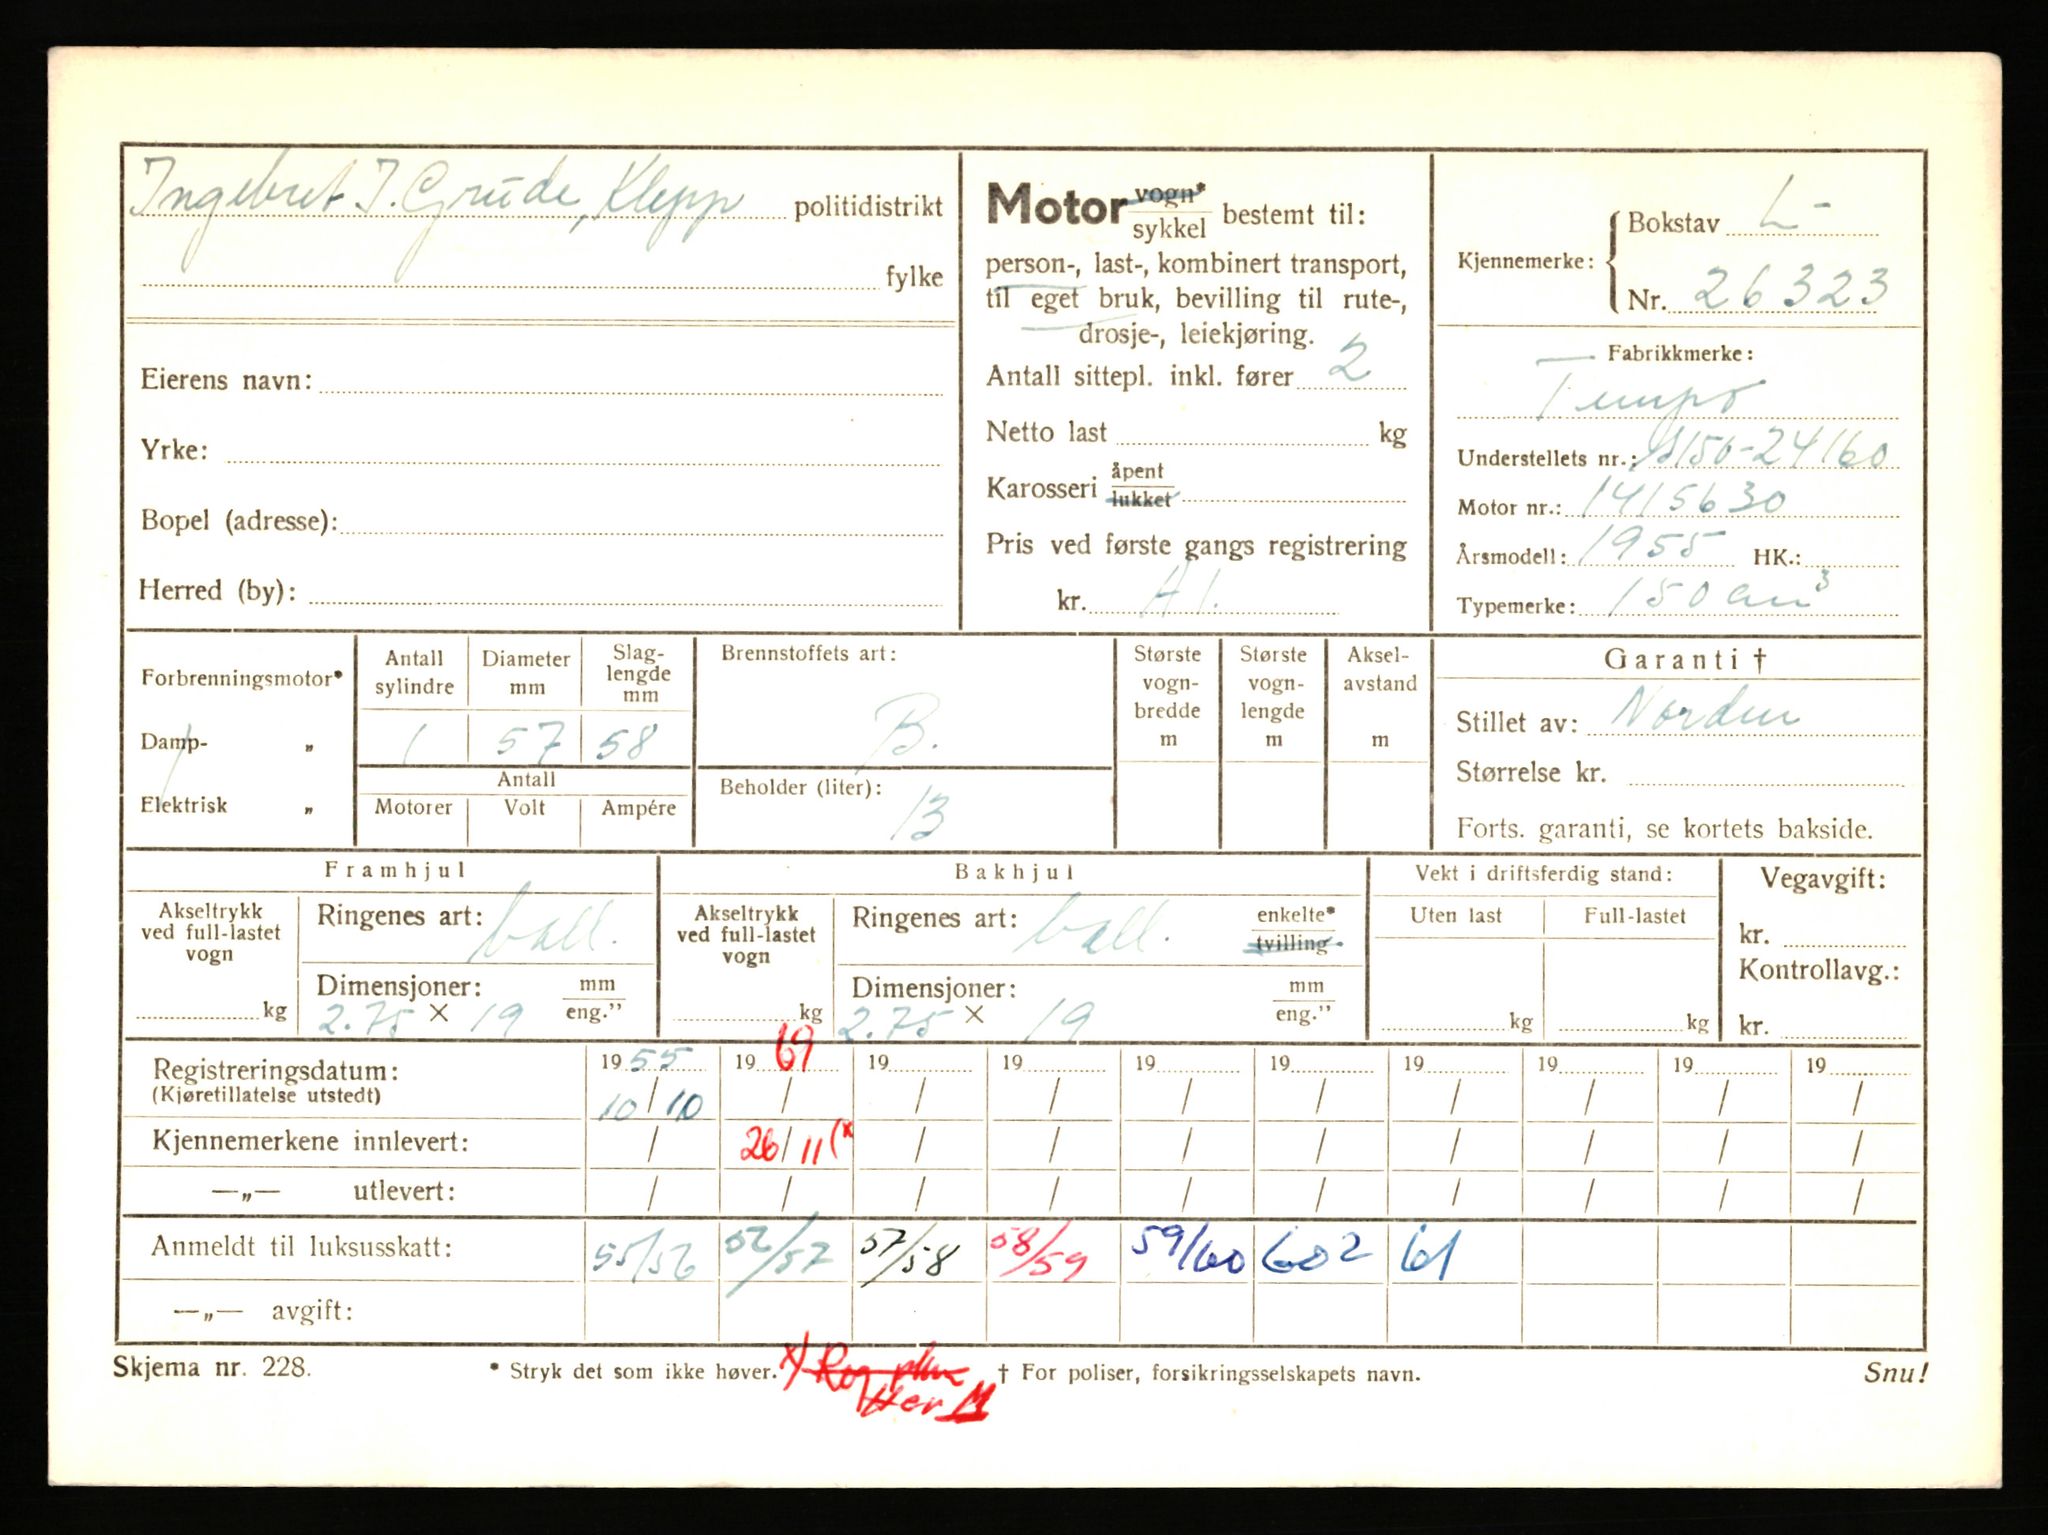 Ingebret I. Grude, Klepp politidistrikt
fylke
Eierens navn:
Yrke:
Bopel (adresse):
Herred (by):
Motor vogn* / sykkel bestemt til:
person-, last-, kombinert transport,
til eget bruk, bevilling til rute-,
drosje-, leiekjøring.
Antall sittepl. inkl. fører 2
Netto last kg
Karosseri åpent / lukket
Pris ved første gangs registrering
kr. A1.
Kjennemerke: Bokstav L-
Nr. 26323
Fabrikkmerke:
Tempo
Understellets nr.: S150-24160
Motor nr.: 1415630
Årsmodell: 1955 HK.:
Typemerke: 150 cm³
Forbrenningsmotor*
Damp- „
Elektrisk „
Antall sylindre 1
Diameter mm 57
Slag-lengde mm 58
Antall
Motorer Volt Ampére
Brennstoffets art:
B.
Beholder (liter):
13
Største vogn-bredde m
Største vogn-lengde m
Aksel-avstand m
Garanti †
Stillet av: Norden
Størrelse kr.
Forts. garanti, se kortets bakside.
Framhjul
Akseltrykk ved full-lastet vogn kg
Ringenes art: ball.
Dimensjoner: mm / eng."
2.75 × 19
Bakhjul
Akseltrykk ved full-lastet vogn kg
Ringenes art: ball. enkelte* / tvilling
Dimensjoner: mm / eng."
2.75 × 19
Vekt i driftsferdig stand:
Uten last Full-lastet
kg kg
Vegavgift:
kr.
Kontrollavg.:
kr.
Registreringsdatum: 1955 1969 19 19 19 19 19 19 19 19
(Kjøretillatelse utstedt) 10/10 / / / / / / / / /
Kjennemerkene innlevert: / 26/11 (x / / / / / / / /
—„— utlevert: / / / / / / / / / /
Anmeldt til luksusskatt: 55/56 56/57 57/58 58/59 59/60 602 61
—„— avgift:
Skjema nr. 228. * Stryk det som ikke høver. x) † For poliser, forsikringsselskapets navn. Snu!